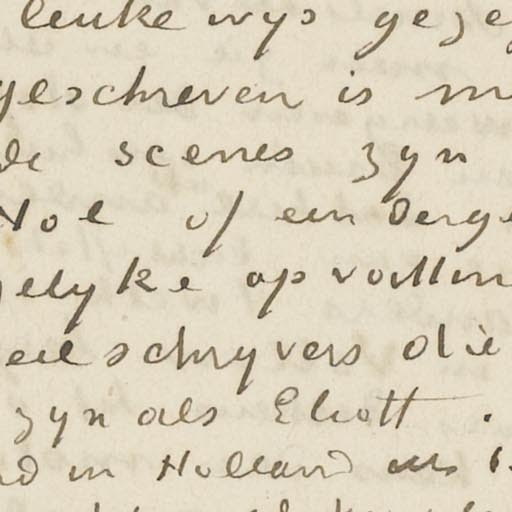 leuke wys gezeg
geschreven is m
de scenes zyn
Noe of een derge
gelyke opvattin
eel schryvers die
zyn als Eliott.
nd in Holland als